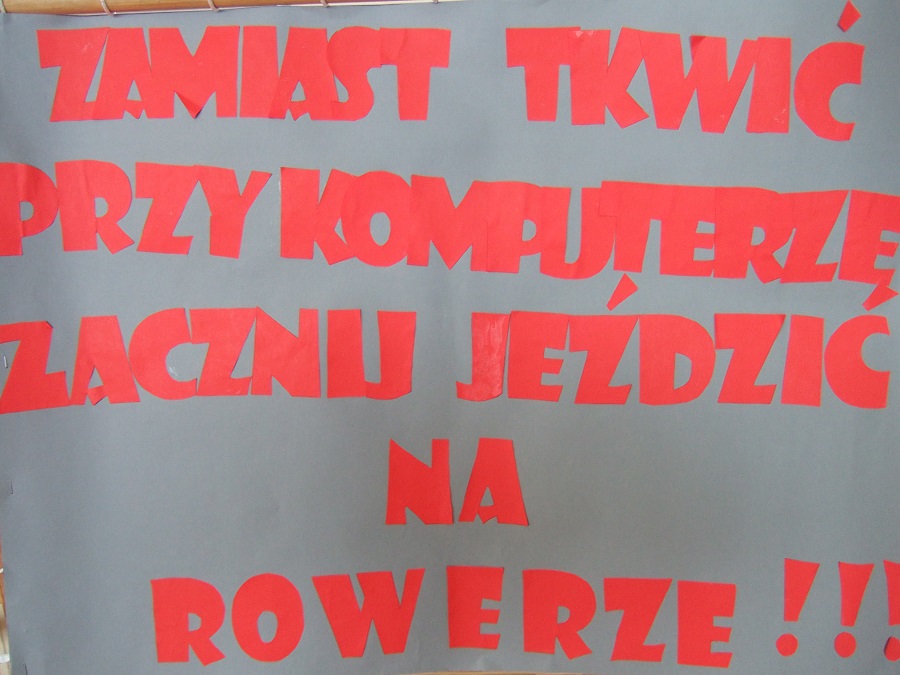 ZAMIAST TKWIĆ
PRZY KOMPUTERZE
ZACZNIJ JEŹDZIĆ
NA
ROWERZE !!!